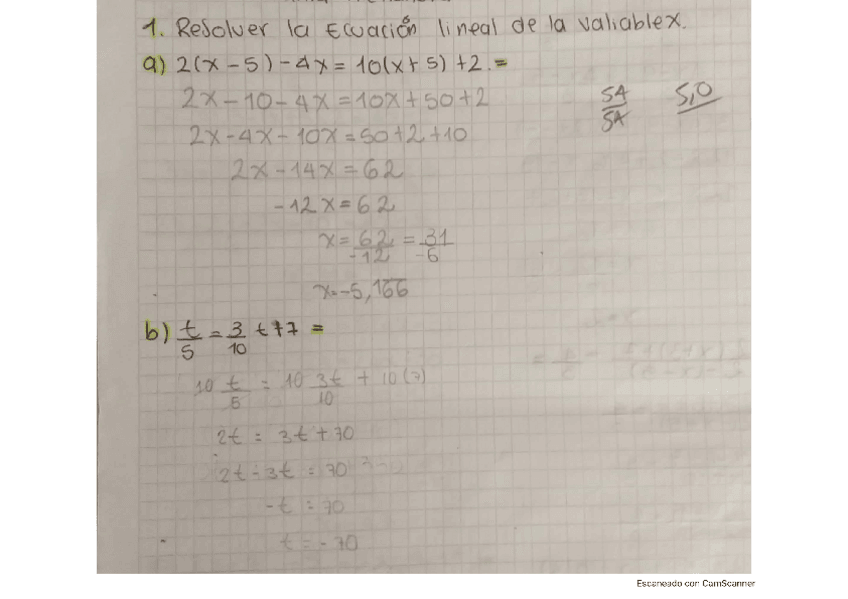 1. Resolver la Ecuación lineal de la valiable x.
a) 2(x - 5) - 4x = 10(x + 5) + 2 =
2x - 10 - 4x = 10x + 50 + 2
54/54 5,0
2x - 4x - 10x = 50 + 2 + 10
2x - 14x = 62
-12x = 62
x = 62/-12 = 31/-6
x = -5,166
b) t/5 = 3/10 t + 7 =
10 t/5 = 10 3t/10 + 10(7)
2t = 3t + 70
2t - 3t = 70
-t = 70
t = -70
Escaneado con CamScanner